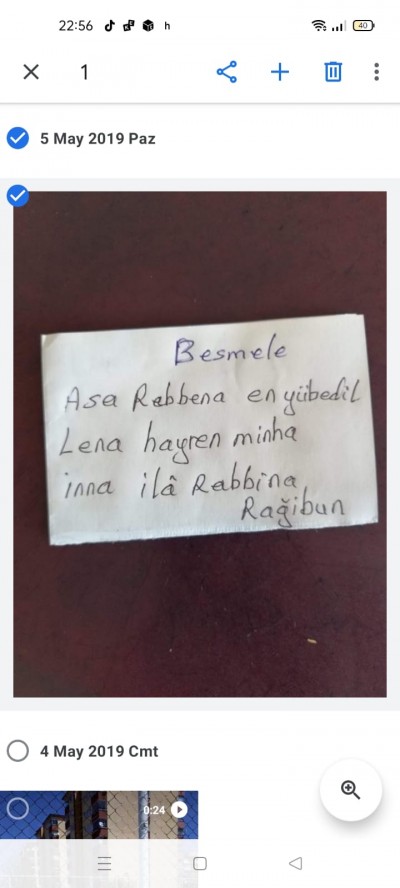 22:56 h 40
1
5 May 2019 Paz
Besmele
Asa Rabbena en yübedil
Lena hayren minha
inna ilâ Rabbina
Rağibun
4 May 2019 Cmt
0:24